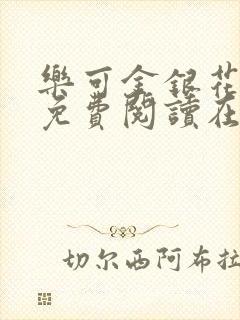 樂可金銀花
免費閱讀在
切尔西阿布拉